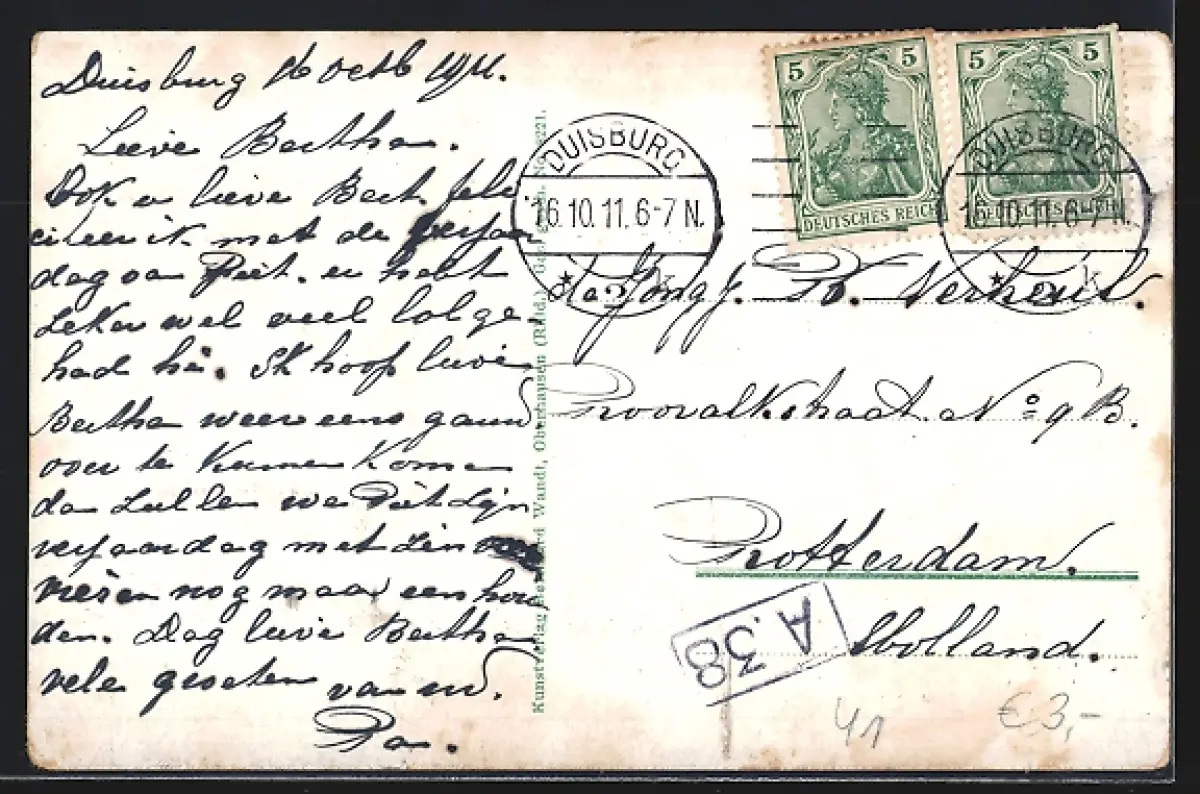 Duisburg 16 Octb 1911.
Lieve Bertha.
Ook u lieve Berth feli-
citeer ik met de verjaar
dag van Piet. en hebt
zeker wel veel lol ge-
had hè. Ik hoop lieve
Bertha weer eens gauw
over te kunnen komen
dan zullen we Piet zijn
verjaardag met zen
vieren nog maar een hou
den. Dag lieve Bertha
vele groeten van uw.
Pa.
Kunstverlag Wandt, Oberhausen (Rhld.)
5 5
DEUTSCHES REICH
5 5
DEUTSCHES REICH
DUISBURG
16.10.11.6-7 N.
DUISBURG
16.10.11.6-7 N.
de Jongj. B. Verheul.
Provalkstraat No 9 B.
Rotterdam.
Holland.
A.38
41
€ 3,-